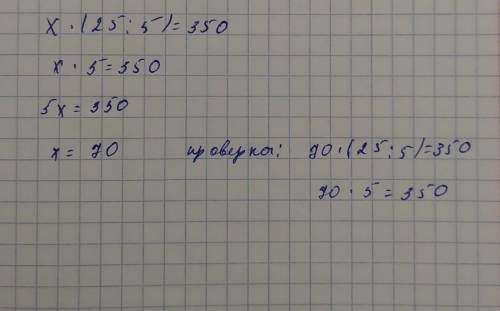 x · (25 : 5) = 350
x · 5 = 350
5x = 350
x = 70 проверка: 70 · (25 : 5) = 350
70 · 5 = 350